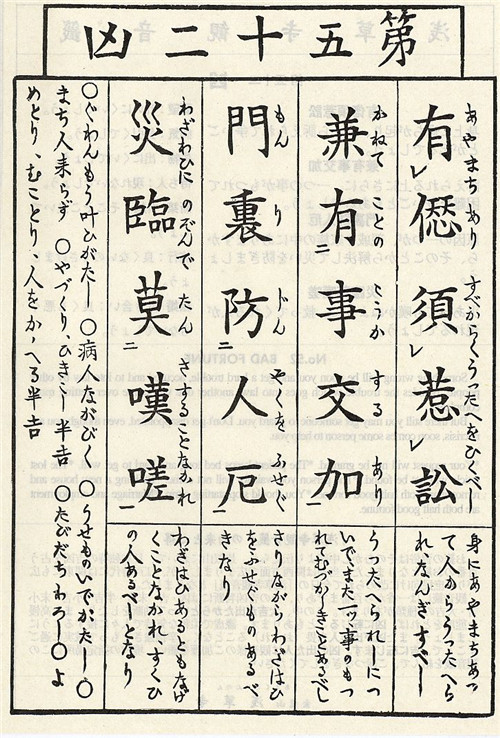 第五十二凶
あやまちあり すべからくうつたへをひくべし
有レ愆須レ惹レ訟
身にあやまちあつ
て人からうつたへら
れ、なんぎすべし
かねてことの する
兼有二事交加一
うつたへられしにつ
いで、また一ッ事のもつ
れてむつかしきことあるべし
もん り じん やくをふせぐ
門裏防二人厄一
さりながらわざはひ
をふせぐものあるべ
きなり
わざわひにのぞんで たんさすることなかれ
災臨莫二嘆嗟一
わざはひあるともなげ
くことなかれ、すくひ
の人あるべしとなり
○ぐわんもう叶ひがたし○病人ながびく ○うせものいでがたし○
まち人来らず ○やづくり、ひきこし半吉 ○たびだちわろし○よ
めとり、むことり、人をかゝへる半吉